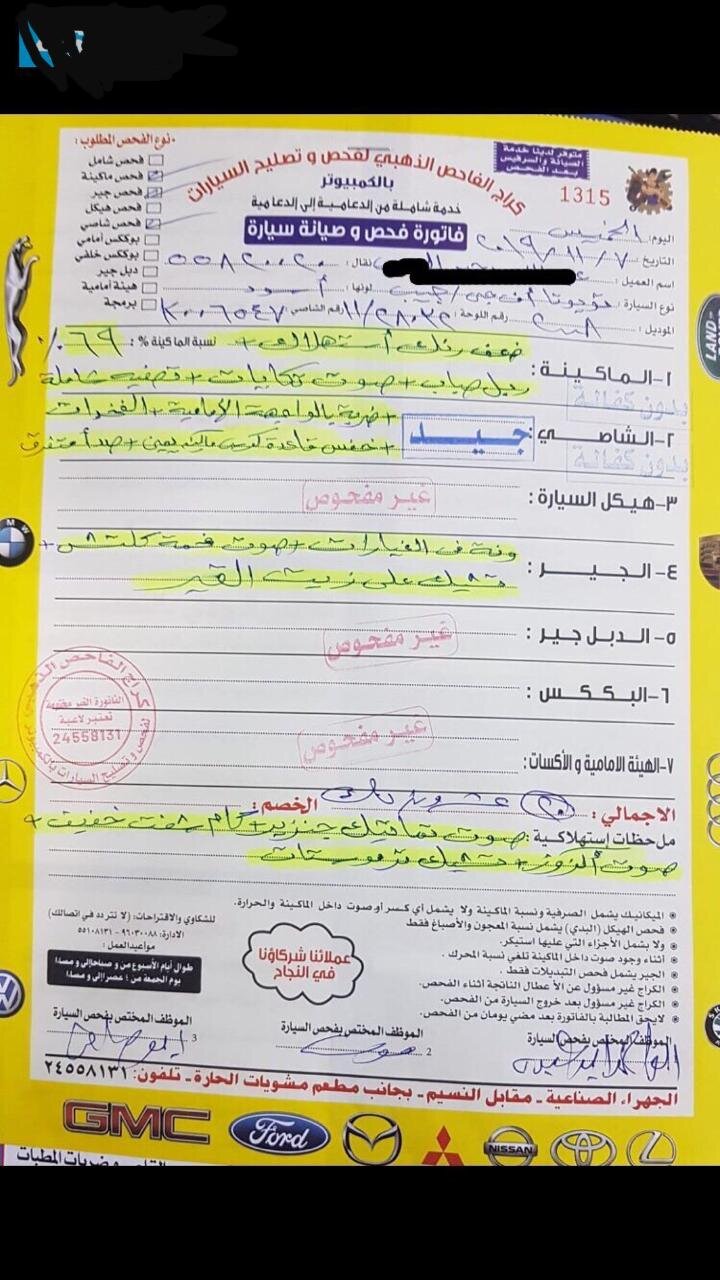 متوفر لدينا خدمة
الصيانة والسرفيس
بعد الفحص
1315
كراج الفاحص الذهبي لفحص و تصليح السيارات
بالكمبيوتر
خدمة شاملة من الدعامية إلى الدعامية
فاتورة فحص و صيانة سيارة
نوع الفحص المطلوب:
فحص شامل
فحص ماكينة
فحص جير
فحص هيكل
فحص شاصي
بوككس أمامي
بوككس خلفي
دبل جير
هيئة أمامية
برمجة
اليوم: الخميس
التاريخ: ٢٠١٩/١١/٧
اسم العميل:
نقال: ٥٥٨٢٠٠٢٠
نوع السيارة: تويوتا أف جي / جيب لونها: أسود
الموديل: ٢٠٠٨ رقم اللوحة: ١١/٢٨٠٣٢ رقم الشاصي: K٠٠٦٥٤٧
١-الماكينة: ضعف رنك أستهلاك + نسبة الماكينة %: ٦٩٪
ريل صباب + صوت تكايات + تصفيه شاملة
بدون كفالة
٢-الشاصي: جيد + ضربة بالواجهة الأمامية + الفخرات
+ خفس قاعدة كرسي ماكينه يمين + صدأ متفرق
بدون كفالة
٣-هيكل السيارة: غير مفحوص
٤-الجير: ونة في الغيارات + صوت فحمة كلتش +
تشيك على زيت القير
٥-الدبل جير: غير مفحوص
٦-البككس:
٧-الهيئة الامامية و الأكسات: غير مفحوص
كراج الفاحص الذهبي
الفاتورة الغير مختومة
تعتبر لاغية
24558131
لفحص و تصليح السيارات بالكمبيوتر
الاجمالي: ٢٠ عشرون دك الخصم:
ملاحظات إستهلاكية: صوت تماتيك جنزير + كام شفت خفيف +
صوت ألروز + تشيك ترموستات
الميكانيك يشمل الصرفية ونسبة الماكينة ولا يشمل أي كسر أو صوت داخل الماكينة والحرارة.
فحص الهيكل (البدي) يشمل نسبة المعجون والأصباغ فقط
ولا يشمل الأجزاء التي عليها استيكر.
أثناء وجود صوت داخل الماكينة تلغي نسبة المحرك.
الجير يشمل فحص التبديلات فقط.
الكراج غير مسؤول عن الأعطال الناتجة أثناء الفحص.
الكراج غير مسؤول بعد خروج السيارة من الفحص.
لا يحق المطالبة بالفاتورة بعد مضي يومان من الفحص.
عملائنا شركاؤنا
في النجاح
للشكاوي والاقتراحات: (لا تتردد في اتصالك)
الادارة: ٩٦٠٣٠٠٨٨ - ٥٥١٠٨١٣١
مواعيد العمل:
طوال أيام الأسبوع من ٧ صباحا إلى ٧ مساءا
يوم الجمعة من ٤ عصرا إلى ٧ مساءا
الموظف المختص بفحص السيارة
الموظف المختص بفحص السيارة
2
الموظف المختص بفحص السيارة
3
الجهراء الصناعية - مقابل النسيم - بجانب مطعم مشويات الحارة - تلفون: ٢٤٥٥٨١٣١
LAND
BMW
GMC
Ford
NISSAN
و ضربات المطبات